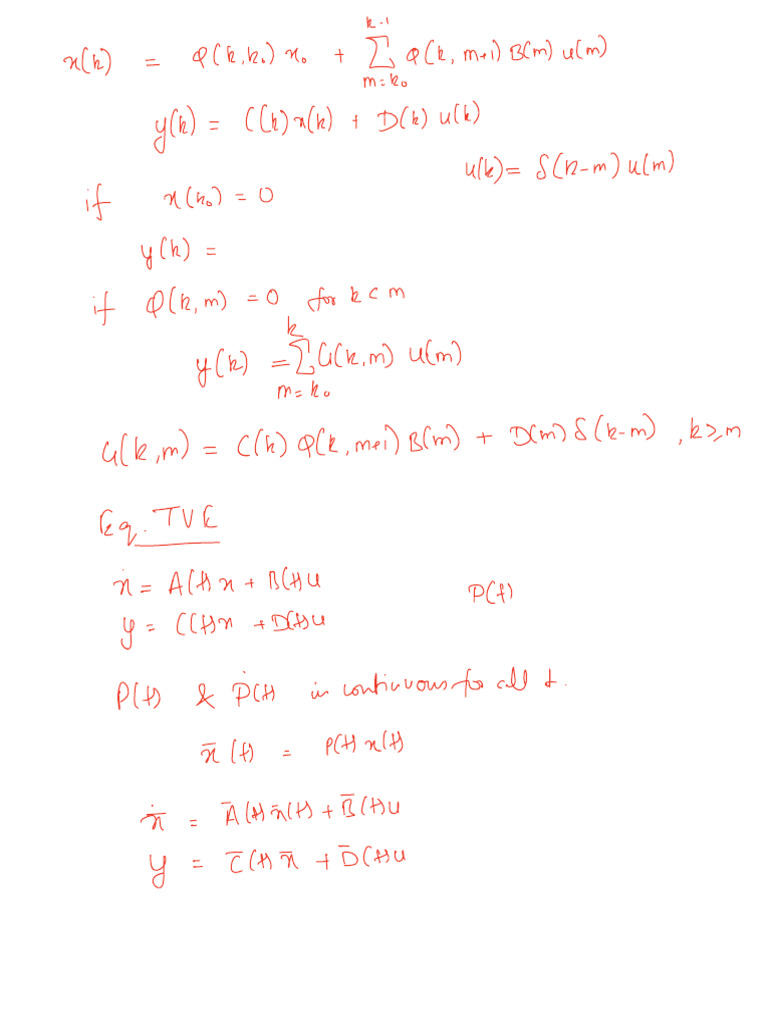 x(k) = Φ(k,k₀) x₀ + Σ_{m=k₀}^{k-1} Φ(k, m+1) B(m) u(m)
y(k) = C(k)x(k) + D(k) u(k)
u(k) = δ(k-m) u(m)
if x(k₀) = 0
y(k) =
if Φ(k,m) = 0 for k < m
y(k) = Σ_{m=k₀}^{k} G(k,m) u(m)
G(k,m) = C(k) Φ(k,m+1) B(m) + D(m) δ(k-m) , k ≥ m
Eq. TVE
ẋ = A(t)x + B(t)u
P(t)
y = C(t)x + D(t)u
P(t) & Ṗ(t) is continuous for all t.
x̄(t) = P(t)x(t)
x̄̇ = Ā(t)x̄(t) + B̄(t)u
y = C̄(t)x̄ + D̄(t)u